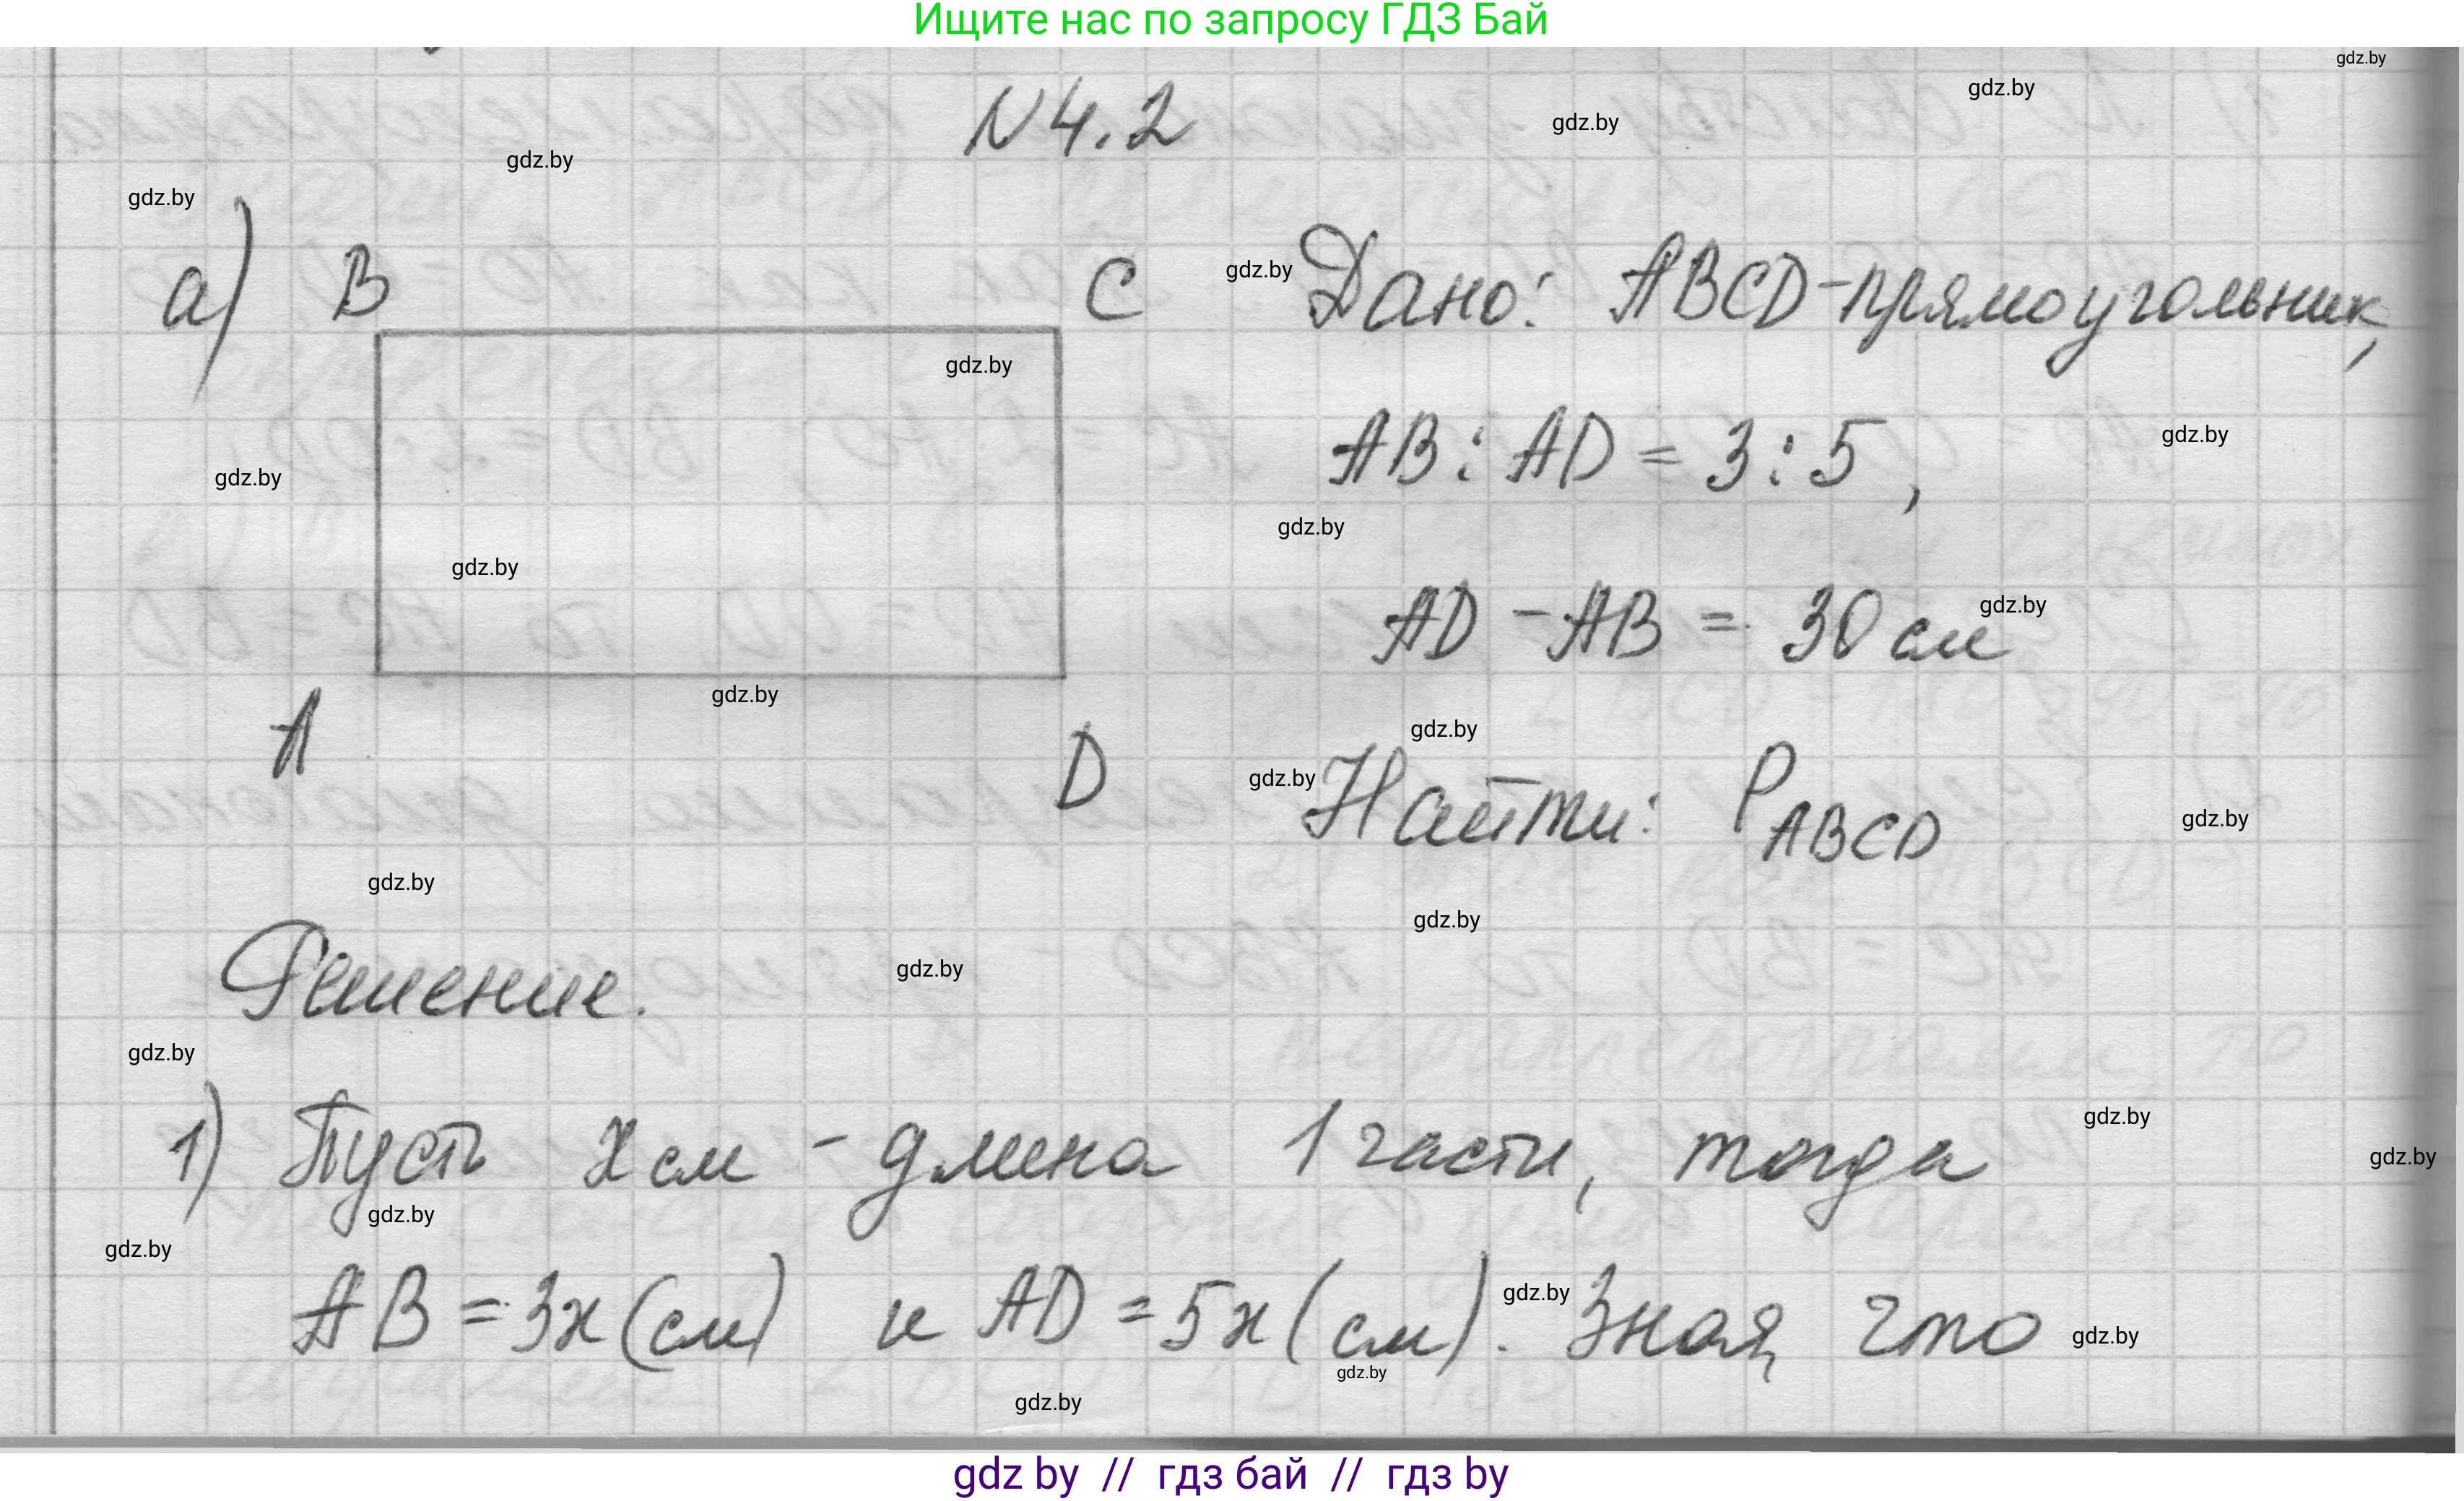 Ищите нас по запросу ГДЗ Бай
gdz.by
gdz.by
gdz.by
N 4.2
gdz.by
gdz.by
а) B C gdz.by Дано: ABCD-прямоугольник,
gdz.by
AB : AD = 3 : 5,
gdz.by
gdz.by
gdz.by
gdz.by
AD - AB = 30 см
gdz.by
gdz.by
A D
gdz.by
gdz.by Найти: P ABCD
gdz.by
gdz.by
gdz.by
Решение.
gdz.by
gdz.by
1) Пусть x см - длина 1 части, тогда
gdz.by
gdz.by
gdz.by
gdz.by
AB = 3x (см) и AD = 5x (см). gdz.by Зная, что
gdz.by
gdz.by
gdz.by
gdz by // гдз бай // гдз by